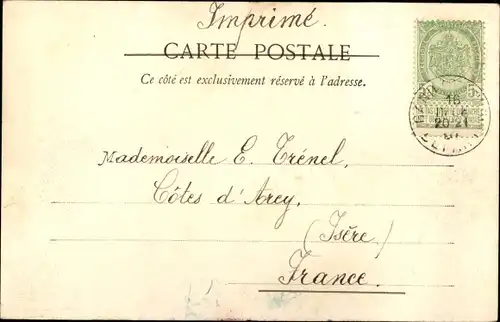 Imprimé.
CARTE POSTALE
Ce côté est exclusivement réservé à l'adresse.
Mademoiselle E. Trénel,
Côtes d'Arey,
(Isère)
France.
16
20-21